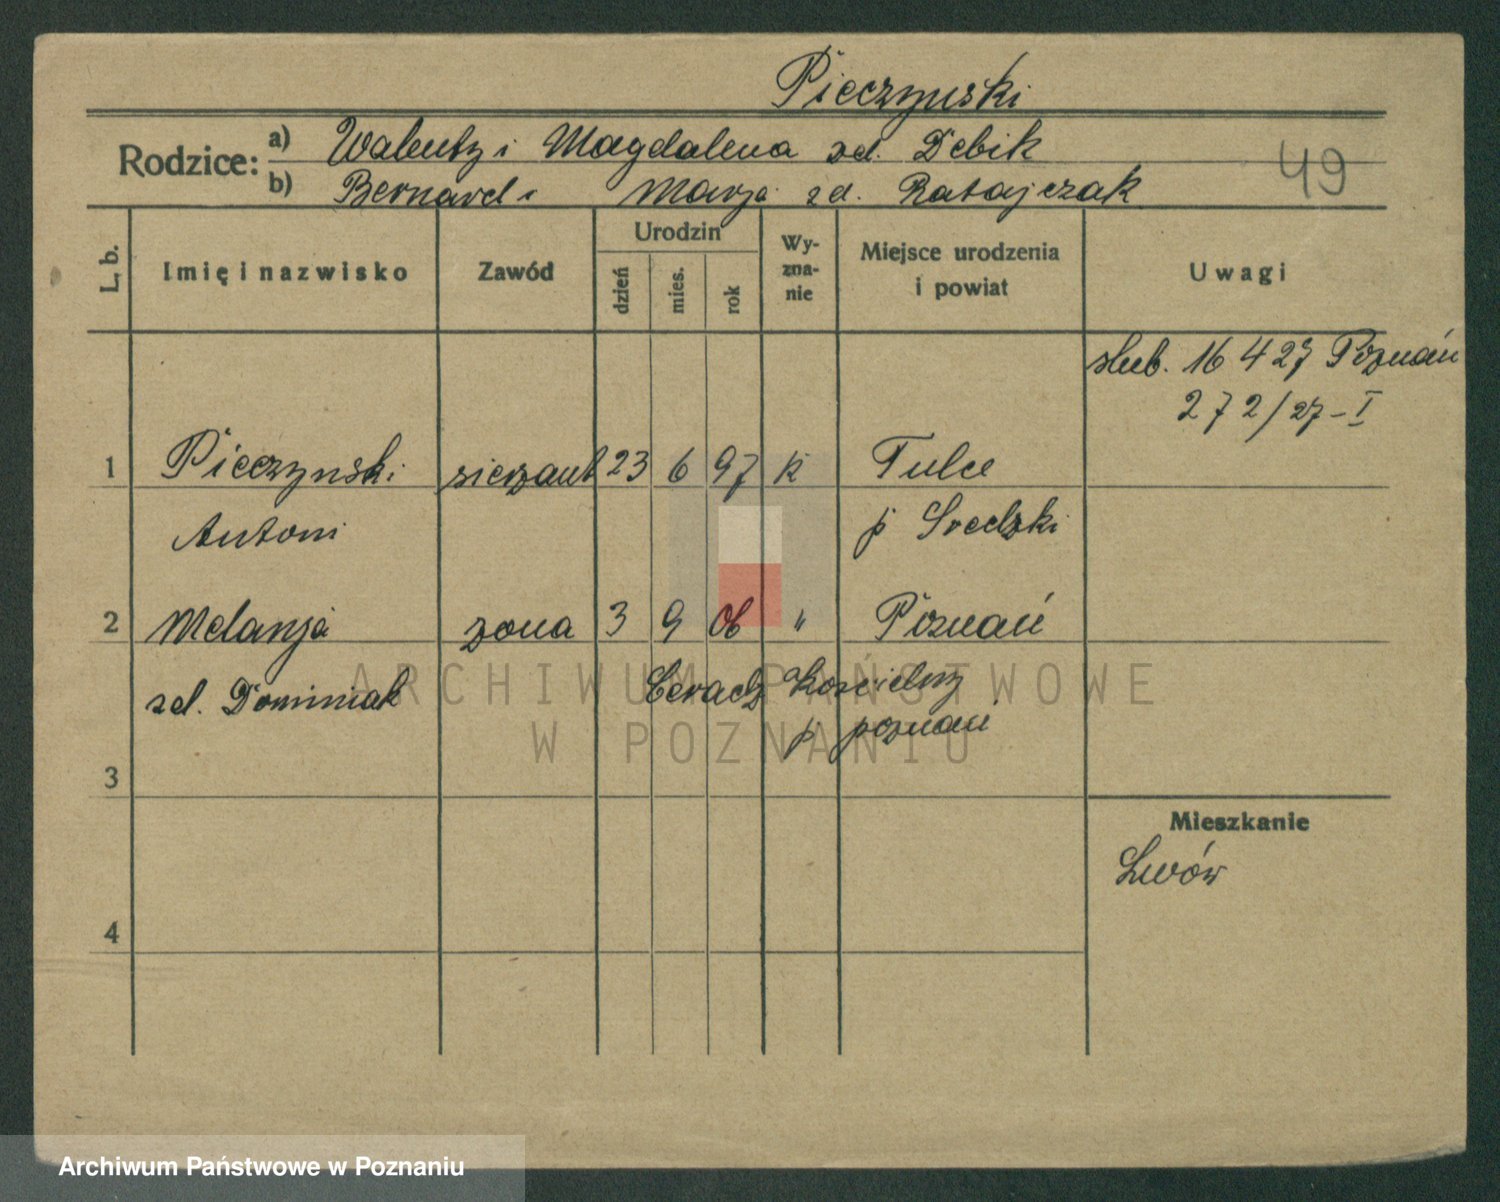 Pieczynski
Rodzice: a) Walenty i Magdalena zd. Debik
b) Bernard i Marja zd. Ratajczak
49
L. b.
Imię i nazwisko
Zawód
Urodzin
dzień
mies.
rok
Wy-
zna-
nie
Miejsce urodzenia
i powiat
Uwagi
slub. 16 4 27 Poznań
272/27-I
1 Pieczynski sierzant 23 6 97 k Tulce
Antoni p Sredzki
2 Melanja zona 3 9 06 " Poznań
zd. Dominiak Ceradz Koscielny
p poznań
3
4
Mieszkanie
Lwów
ARCHIWUM PAŃSTWOWE
W POZNANIU
Archiwum Państwowe w Poznaniu